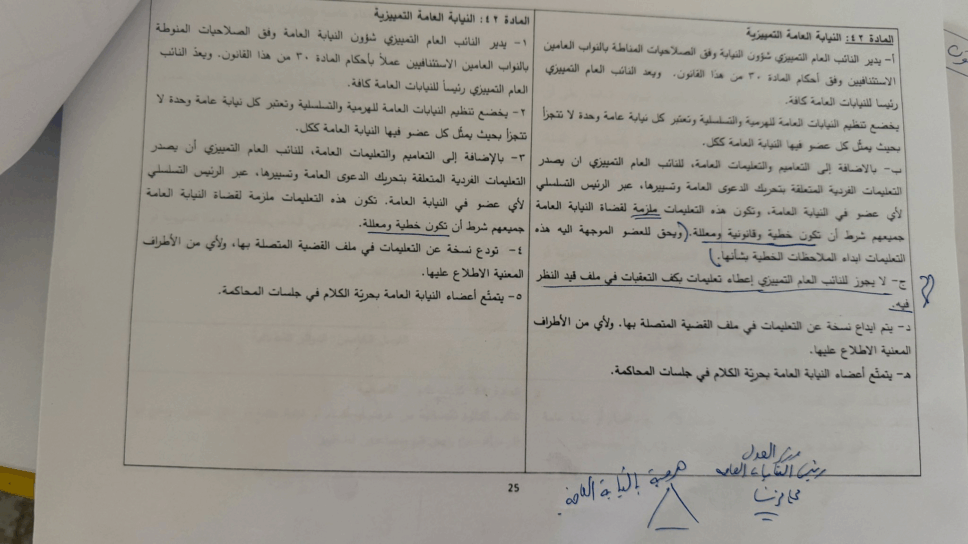 المادة ٤٢: النيابة العامة التمييزية
أ- يدير النائب العام التمييزي شؤون النيابة وفق الصلاحيات المناطة بالنواب العامين
الاستئنافيين وفق أحكام المادة ٣٠ من هذا القانون. ويعد النائب العام التمييزي
رئيسا للنيابات العامة كافة.
يخضع تنظيم النيابات العامة للهرمية والتسلسلية وتعتبر كل نيابة عامة وحدة لا تتجزأ
بحيث يمثل كل عضو فيها النيابة العامة ككل.
ب- بالاضافة إلى التعاميم والتعليمات العامة، للنائب العام التمييزي ان يصدر
التعليمات الفردية المتعلقة بتحريك الدعوى العامة وتسييرها، عبر الرئيس التسلسلي
لأي عضو في النيابة العامة، وتكون هذه التعليمات ملزمة لقضاة النيابة العامة
جميعهم شرط أن تكون خطية وقانونية ومعللة. ويحق للعضو الموجهة اليه هذه
التعليمات ابداء الملاحظات الخطية بشأنها.
ج- لا يجوز للنائب العام التمييزي إعطاء تعليمات بكف التعقبات في ملف قيد النظر
فيه.
د- يتم ايداع نسخة عن التعليمات في ملف القضية المتصلة بها. ولأي من الأطراف
المعنية الاطلاع عليها.
هـ- يتمتّع أعضاء النيابة العامة بحريّة الكلام في جلسات المحاكمة.
المادة ٤٢: النيابة العامة التمييزية
١- يدير النائب العام التمييزي شؤون النيابة العامة وفق الصلاحيات المنوطة
بالنواب العامين الاستئنافيين عملاً بأحكام المادة ٣٠ من هذا القانون. ويعدّ النائب
العام التمييزي رئيساً للنيابات العامة كافة.
٢- يخضع تنظيم النيابات العامة للهرمية والتسلسلية وتعتبر كل نيابة عامة وحدة لا
تتجزأ بحيث يمثّل كل عضو فيها النيابة العامة ككل.
٣- بالإضافة إلى التعاميم والتعليمات العامة، للنائب العام التمييزي أن يصدر
التعليمات الفردية المتعلقة بتحريك الدعوى العامة وتسييرها، عبر الرئيس التسلسلي
لأي عضو في النيابة العامة. تكون هذه التعليمات ملزمة لقضاة النيابة العامة
جميعهم شرط أن تكون خطية ومعللة.
٤- تودع نسخة عن التعليمات في ملف القضية المتصلة بها، ولأي من الأطراف
المعنية الاطلاع عليها.
٥- يتمتّع أعضاء النيابة العامة بحريّة الكلام في جلسات المحاكمة.
العدل
رئيس النيابات العامة
هرمية بالنيابة العامة
25